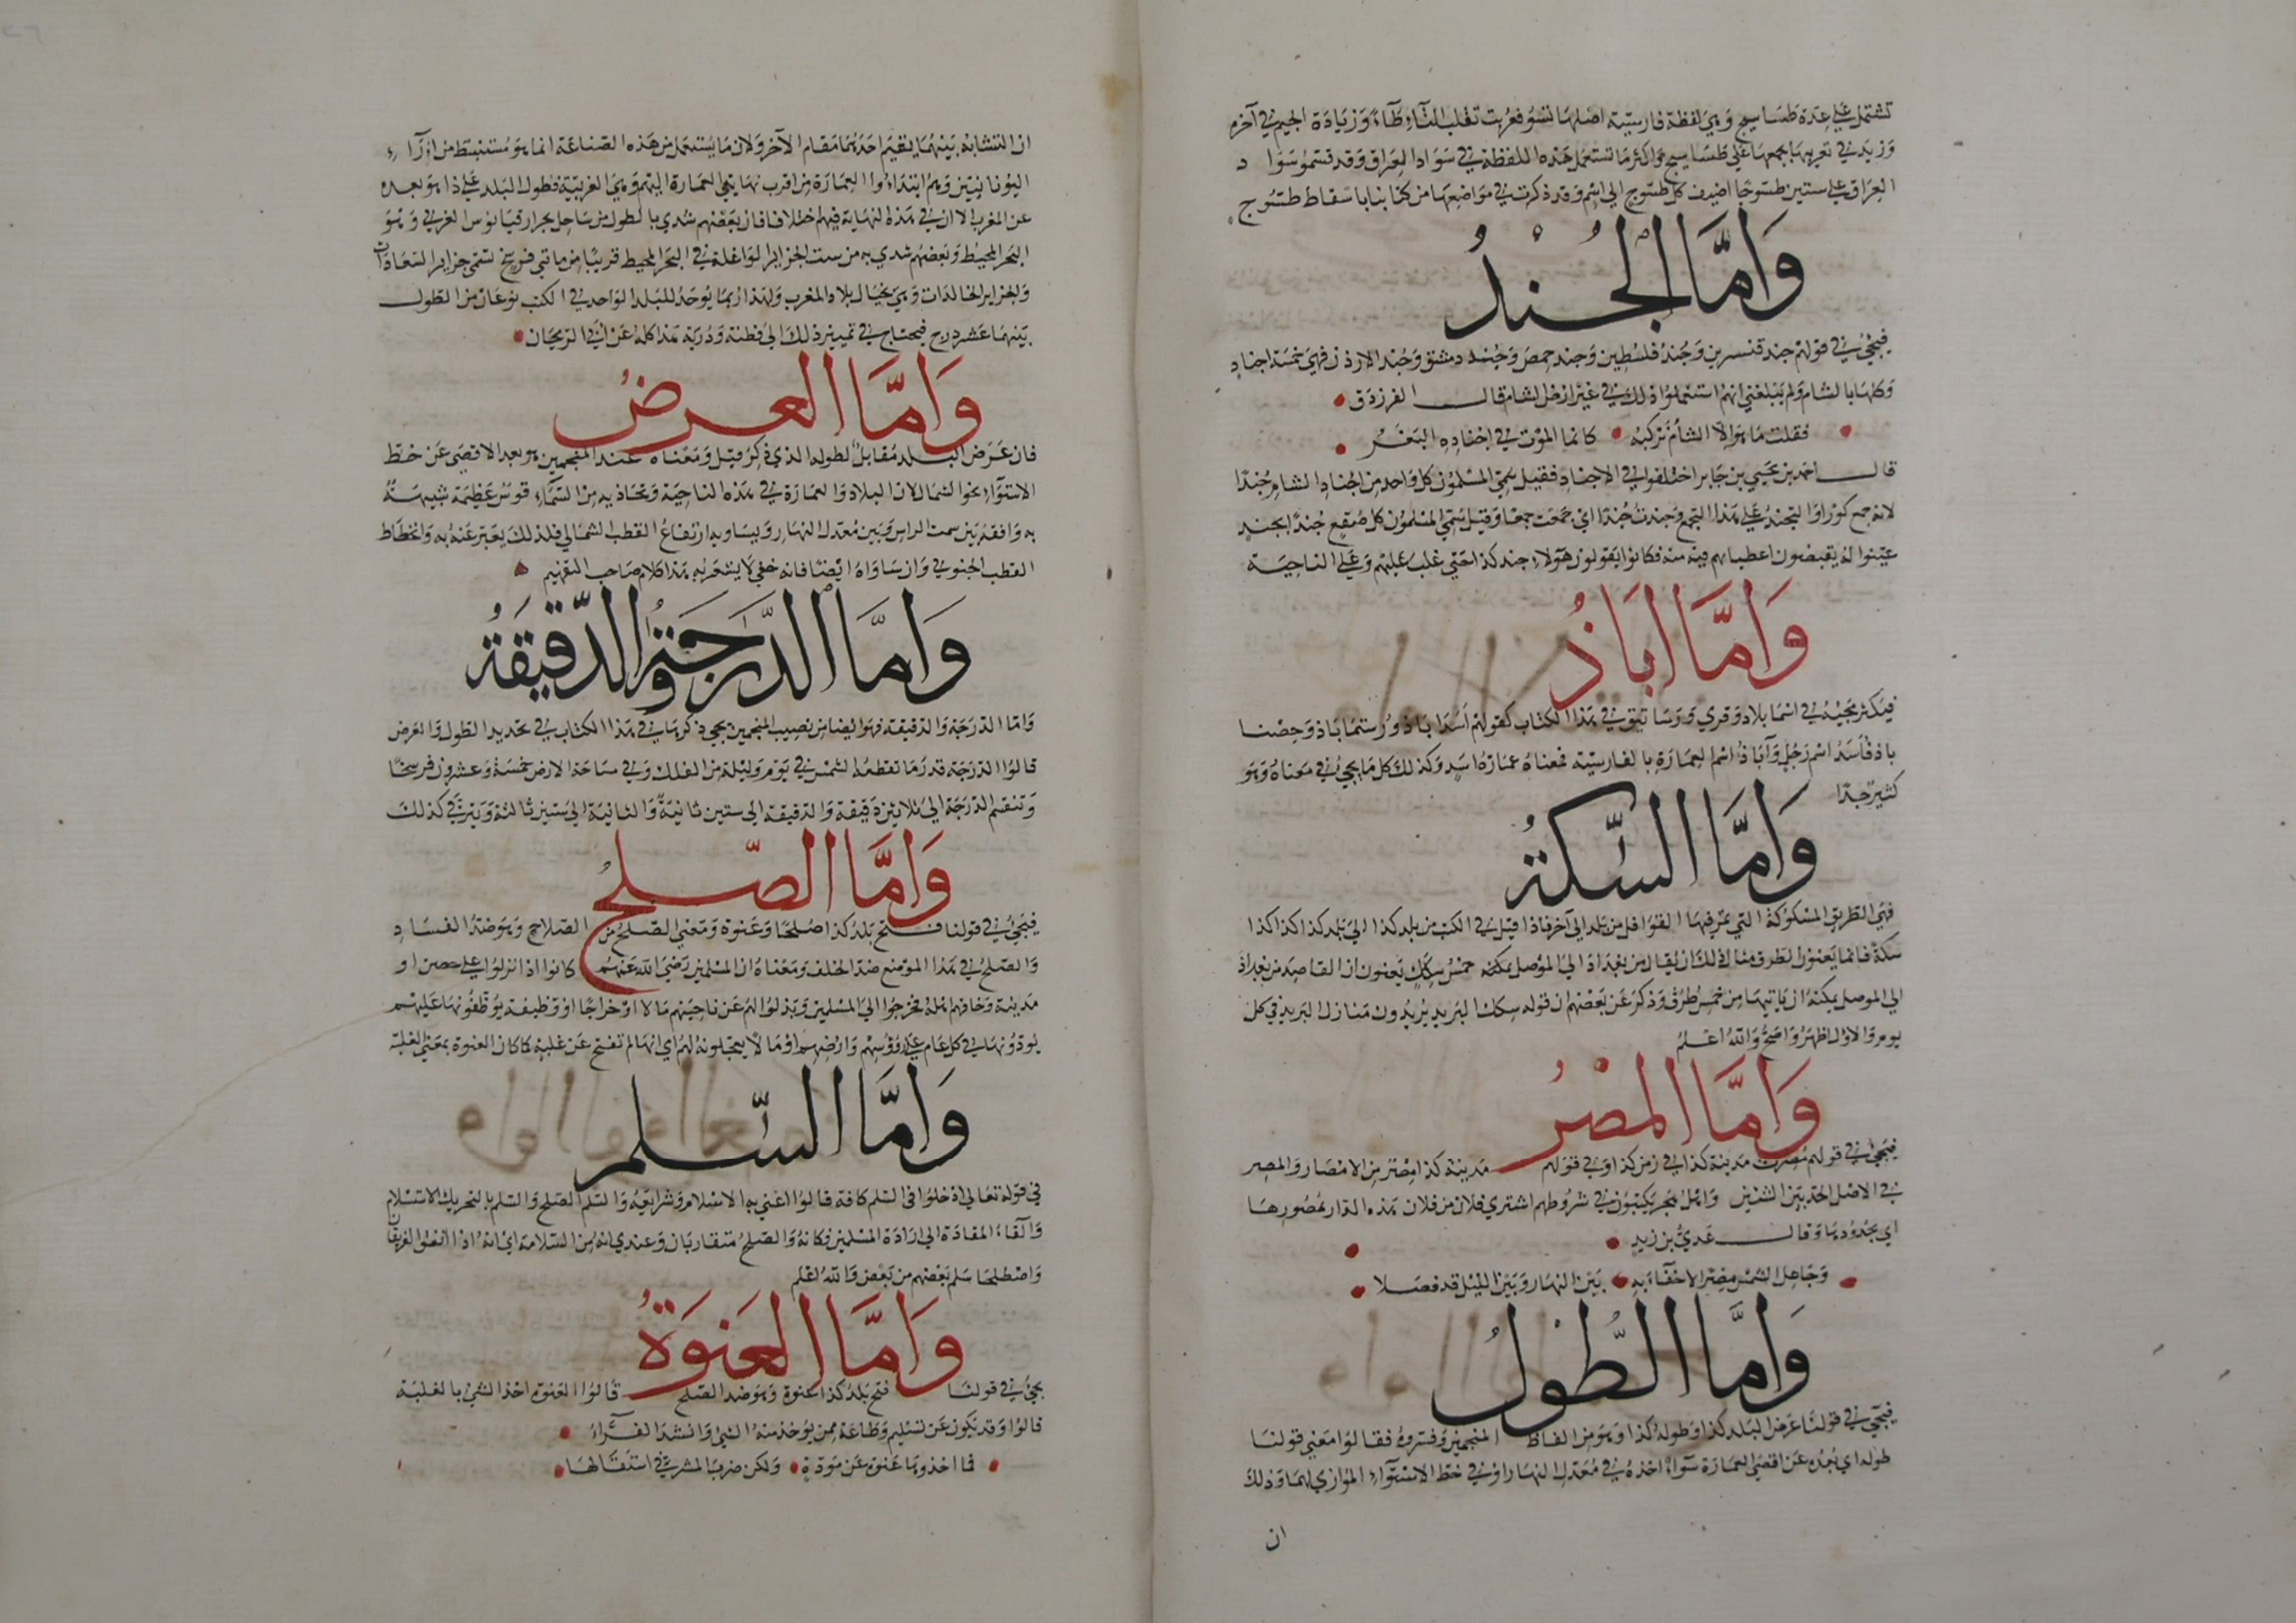 تشتمل على عدة طساسيج وهي لفظة فارسية اصلها تسو فعربت تغلب التاء طآء وزيادة الجيم في آخره
وزيد في تعريبها بجمعها على طساسيج واكثر ما تستعمل هذه اللفظة في سواد العراق وقد قسموا سواد
العراق على ستين طسوجا اضيف كل طسوج الى اسم وقد ذكرت في مواضعها من كتابنا باسقاط طسوج
وَامَّا الجُندُ
فيجئ في قولهم جند قنسرين وجند فلسطين وجند حمص وجند دمشق وجند الاردن فهي خمسة اجناد
وكلها بالشام ولم يبلغني انهم استعملوا ذلك في غير ارض الشام قال الفرزدق
فقلت ما هو الا الشام نركبه كانما الموت في اجناده البغر
قال احمد بن يحيى بن جابر اختلفوا في الاجناد فقيل سمى المسلمون كل واحد من اجناد الشام جندا
لانه جمع كورا والتجند على هذا التجمع وجندت جندا اي جمعت جمعا وقيل سمى المسلمون كل صقع جندا بجند
عينوا له يقبضون اعطياتهم فيه منه فكانوا يقولون هؤلاء جند كذا حتى غلب عليهم وعلى الناحية
وَامَّا ابَاذُ
فيكثر مجيئه في اسما بلاد وقرى ورساتيق في هذا الكتاب كقولهم اسدا باذ ورستما باذ وحصنا
باذ فاسد اسم رجل وآباذ اسم العمارة بالفارسية فمعناه عمارة اسد وكذلك كل ما يجئ في معناه وهو
كثير جدا
وَامَّا السِّكةُ
فهي الطريق المسكوكة التي تمر فيها القوافل من بلد الى آخر فاذا قيل في الكتب من بلد كذا الى بلد كذا كذا كذا
سكة فانما يعنون الطرق مثال ذلك ان يقال من بغداد الى الموصل يمكنه خمس سكك يعنون ان القاصد من بغداذ
الى الموصل يمكنه ان ياتيها من خمس طرق وذكر عن بعضهم ان قوله سكك البريد يريدون منازل البريد في كل
يوم والاول اظهر واصح والله اعلم
وَامَّا المصْرُ
فيجئ في قولهم مصرت مدينة كذا في زمن كذا وفي قولهم مدينة كذا مصر من الامصار والمصر
في الاصل الحد بين الشئين واهل هجر يكتبون في شروطهم اشترى فلان من فلان هذه الدار بمصورها
اي بحدودها وقال عدي بن زيد
وجاعل الشمس مصرا لا خفآء به بين النهار وبين الليل قد فصلا
وَامَّا الطُّولُ
فيجئ في قولنا عرض البلد كذا وطوله كذا وهو من الفاظ المنجمين وفسروه فقالوا معنى قولنا
طوله اي بعده عن اقصى العمارة سوآء اخذه في معدل النهار او في خط الاستوآء الموازي لهما وذلك
ان
ان التشابه بينهما يقيم احدهما مقام الآخر ولان ما يستعمل من هذه الصناعة انما هو مستنبط من آرآء
اليونانيين وهم ابتدأوا العمارة من اقرب نهايتي العمارة اليهم وهي الغربية فطول البلد على ذا هو بعده
عن المغرب الا ان في هذه النهاية فيهم اختلافا فان بعضهم يبتدي بالطول من ساحل بحر اوقيانوس الغربي وهو
البحر المحيط وبعضهم يبتدي به من سمت الجزاير الواغلة في البحر المحيط قريبا من مائتي فرسخ تسمى جزاير السعادات
والجزاير الخالدات وهي بحيال بلاد المغرب ولهذا ربما يوجد للبلد الواحد في الكتب نوعان من الطول
بينهما عشر درج فيحتاج في تمييز ذلك الى فطنة ودربة هذا كله عن ابي الريحان
وَامَّا العرضُ
فان عرض البلد مقابل لطوله الذي ذكر قبل ومعناه عند المنجمين هو بعده الاقصى عن خط
الاستوآء نحو الشمال لان البلاد والعمارة في هذه الناحية وتحاذيه من السمآء قوس عظيمة شبيهة
به واقفة بين سمت الراس وبين معدل النهار ويساويه ارتفاع القطب الشمالي فلذلك يعبر عنه به وانحطاط
القطب الجنوبي وان ساواه ايضا فانه خفي لا يشعر به هذا كلام صاحب التفهيم
وَامَّا الدَّرَجَة وَالدَّقيقَةُ
واما الدرجة والدقيقة فهو ايضا من نصيب المنجمين يجئ ذكرها في هذا الكتاب في تحديد الطول والعرض
قالوا الدرجة قدر ما تقطعه الشمس في يوم وليلة من الفلك وفي مساحة الارض خمسة وعشرون فرسخا
وتنقسم الدرجة الى ثلاثين دقيقة والدقيقة الى ستين ثانية والثانية الى ستين ثالثة ويترقى كذلك
وَامَّا الصّلحُ
فيجئ في قولنا فتح بلد كذا صلحا وعنوة ومعنى الصلح من الصلاح وهو ضد الفساد
والصلح في هذا الموضع ضد الخلف ومعناه ان المسلمين رضي الله عنهم كانوا اذا نزلوا على حصن او
مدينة وخافهم اهله فخرجوا الى المسلمين وبذلوا لهم عن ناحيتهم مالا او خراجا او وظيفة يوظفونها عليهم
يودونها في كل عام على رؤوسهم وارضهم او مالا يعجلونه لهم اي انها لم تفتح عن غلبة كما كان العنوة بمعنى الغلبة
وَامَّا السِّلم
في قوله تعالى ادخلوا في السلم كافة قالوا اعني به الاسلام وشرايعه والسلم الصلح والسلم بالتحريك الاستسلام
والقآء المقادة الى ارادة المسلمين فكانه والصلح متقاربان وعندي انه من السلامة اي انه اذا اتفق الفريقان
واصطلحا سلم بعضهم من بعض والله اعلم
وَامَّا العَنوَةُ
يجئ في قولنا فتح بلد كذا عنوة وهو ضد الصلح قالوا العنوة اخذ الشئ بالغلبة
قالوا وقد يكون عن تسليم وطاعة ممن يوخذ منه الشئ وانشد الفرآء
فما اخذوها عنوة عن مودة ولكن ضرب المشرفي استقالها